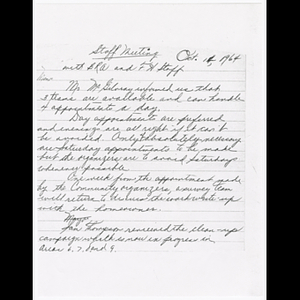 Staff Meeting Oct. 1, 1964
with BRA and FH Staff
Mr. McGilvray informed us that
3 teams are available and can handle
4 appointments a day.
Day appointments are preferred
and evenings are all right if it can't
be avoided. Only if absolutely necessary
are Saturday appointments to be made
but the organizers are to avoid Saturdays
whenever possible.
One week from the appointment made
by the Community organizers, a survey team
will return to the work write up
with the homeowner.
Thompson reviewed the clean-up
campaign which is now in progress in
areas 6, 7, and 9.